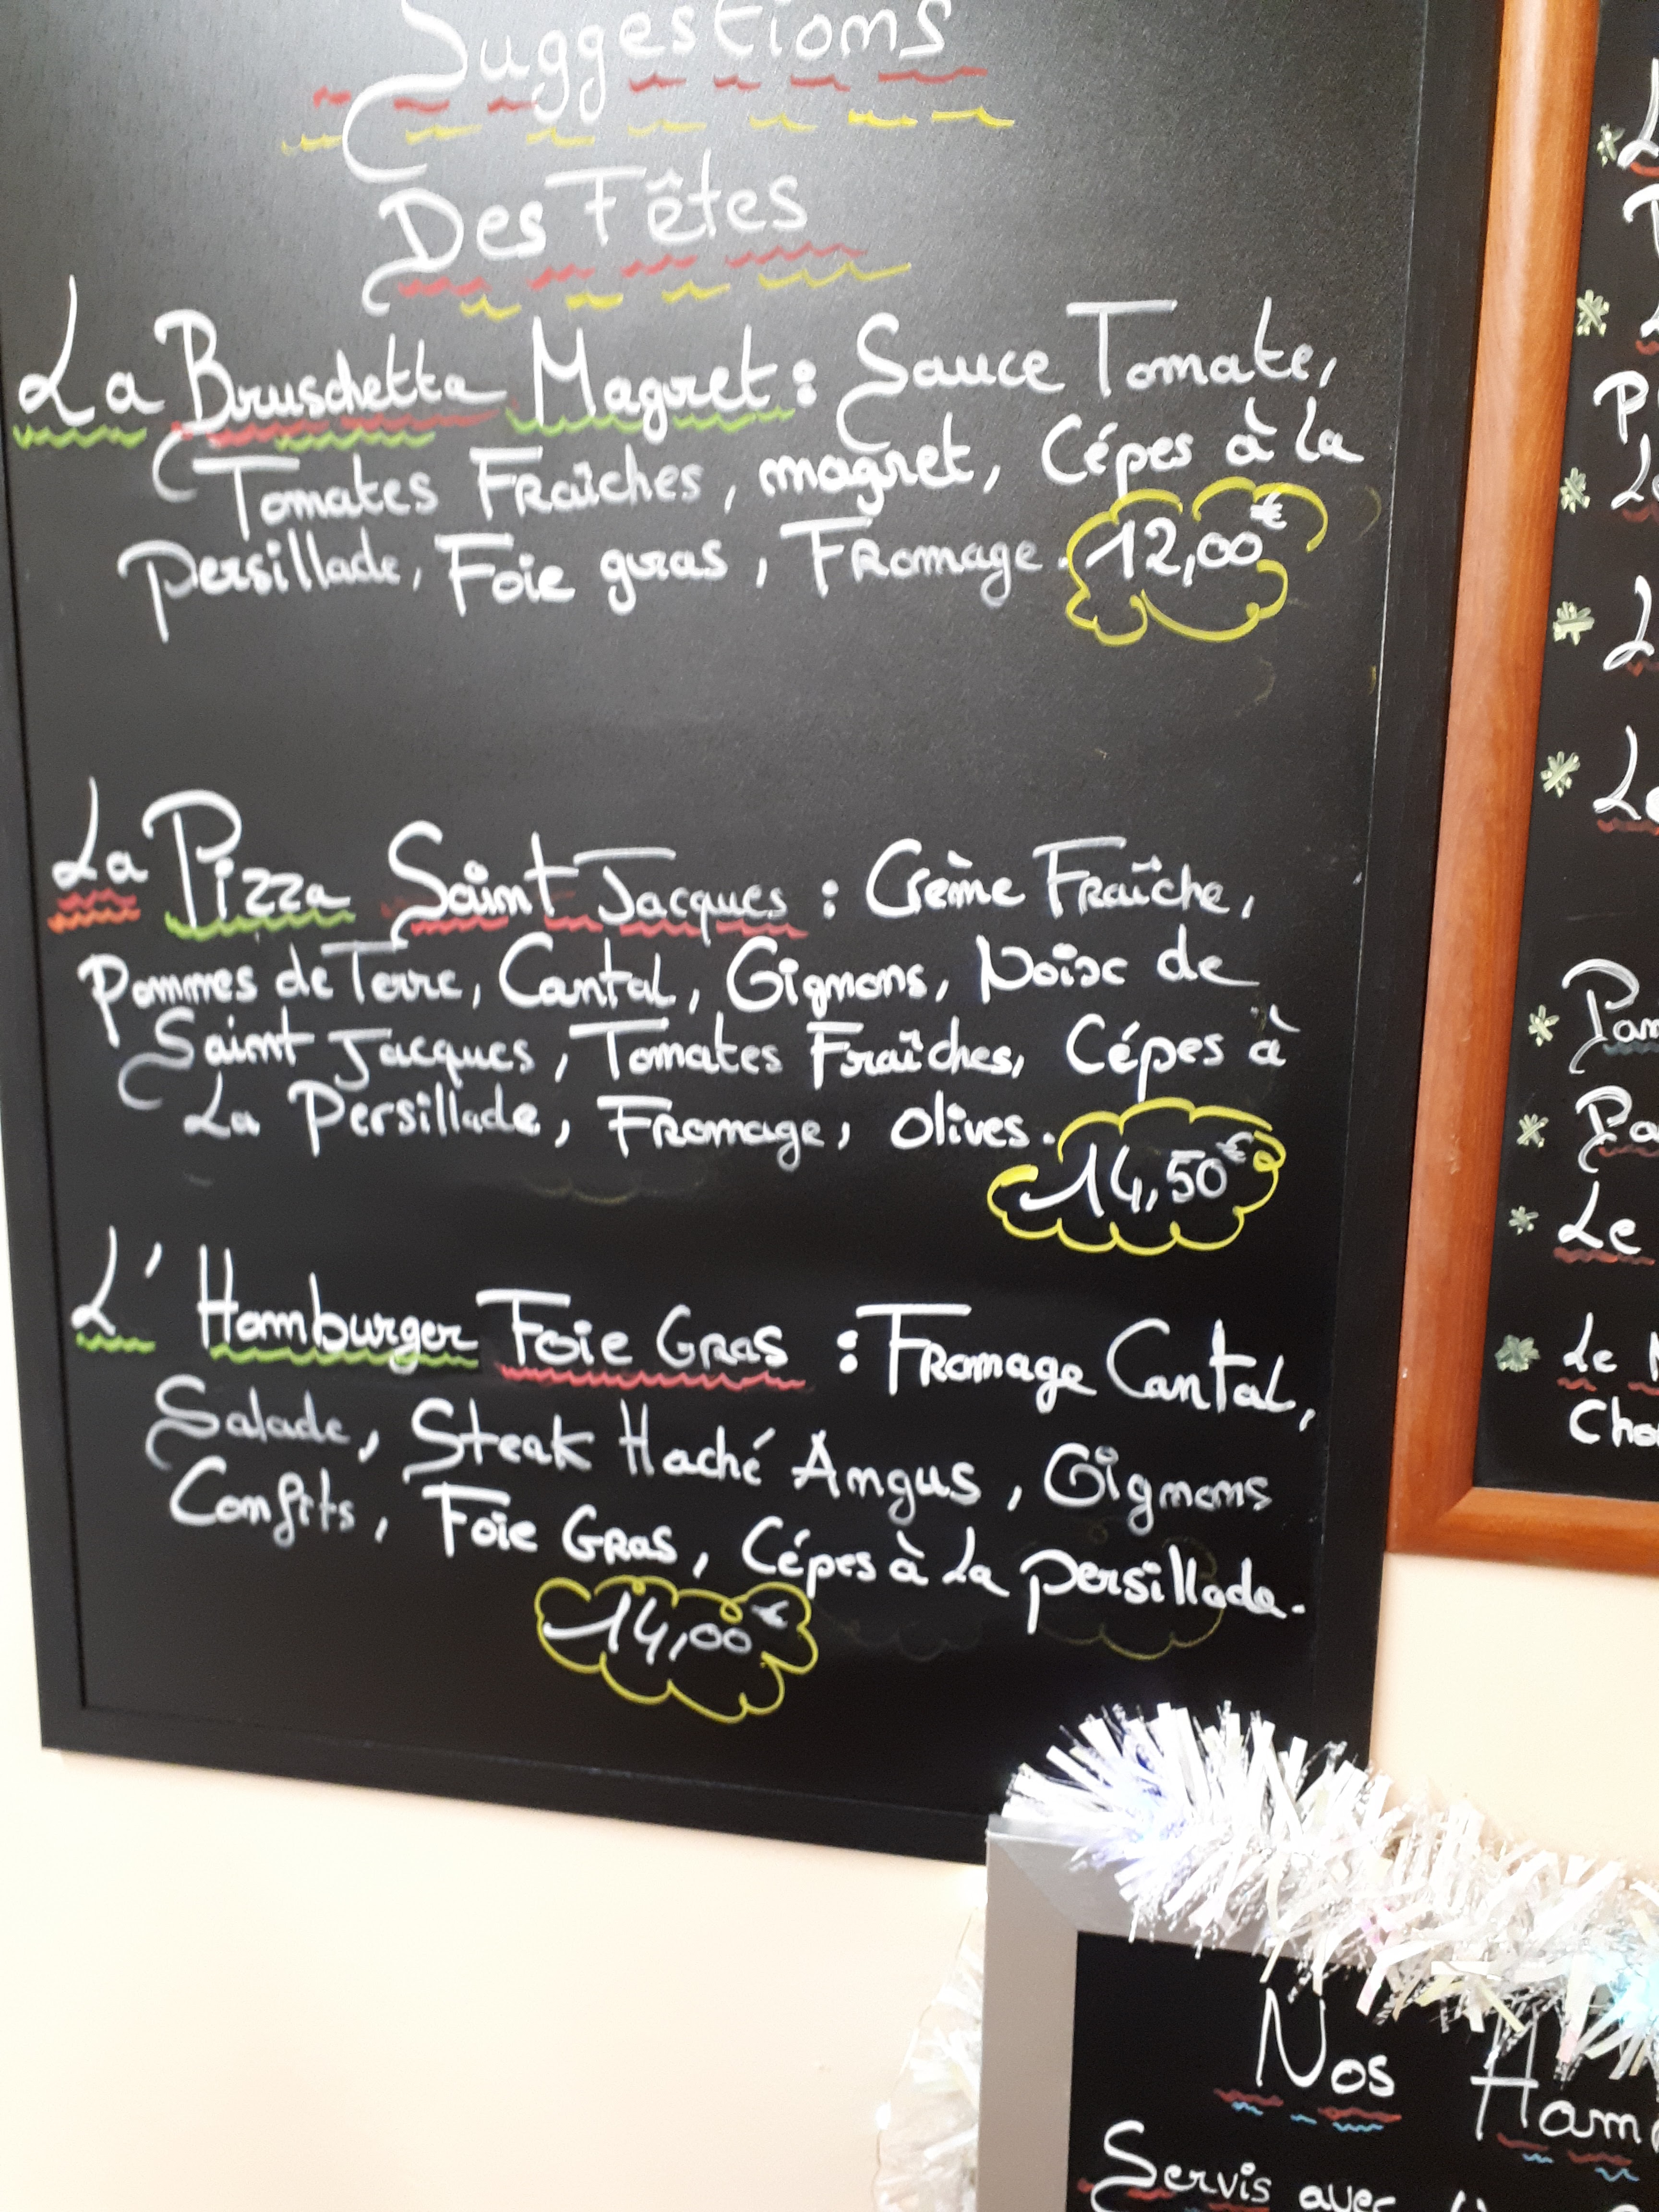 Suggestions
Des Fêtes
La Bruschetta Magret : Sauce Tomate,
Tomates Fraîches, magret, Cépes à la
Persillade, Foie gras, Fromage. 12,00€
La Pizza Saint Jacques : Crème Fraîche,
Pommes de Terre, Cantal, Oignons, Noix de
Saint Jacques, Tomates Fraîches, Cépes à
La Persillade, Fromage, Olives.
14,50€
L' Hamburger Foie Gras : Fromage Cantal,
Salade, Steak Haché Angus, Oignons
Confits, Foie Gras, Cépes à La Persillade.
14,00€
Le
Nos
Servis avec